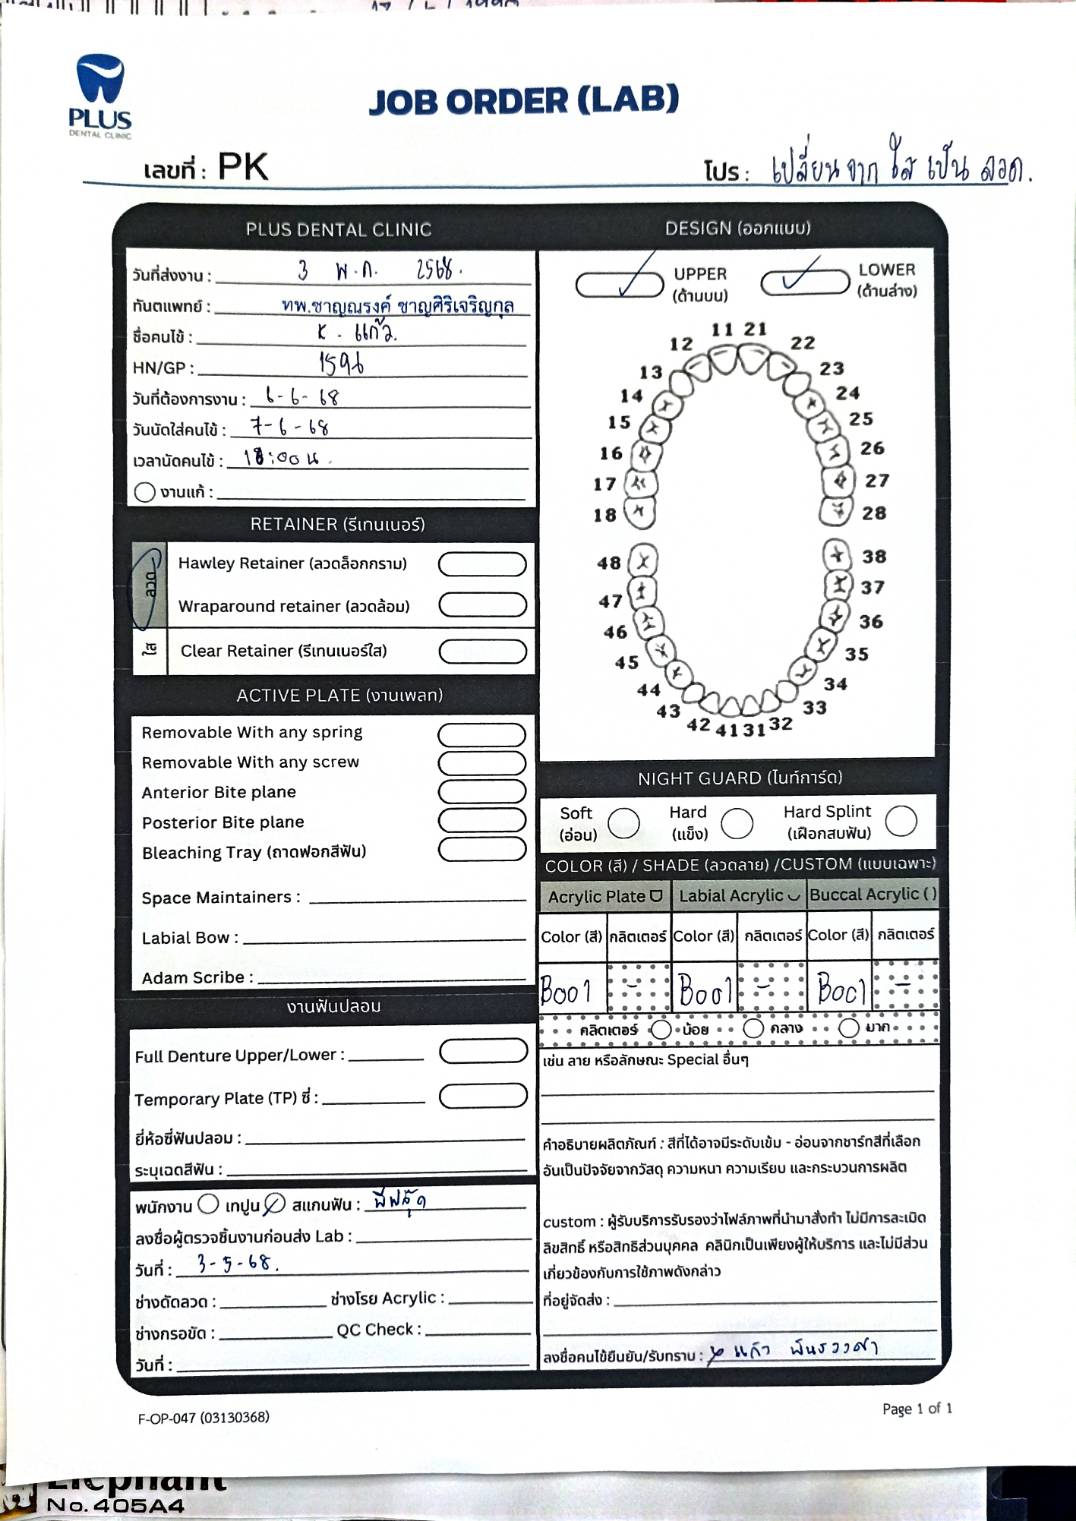 PLUS
DENTAL CLINIC
JOB ORDER (LAB)
เลขที่ : PK
โปร : เปลี่ยนจาก ใส เป็น ลวด.
PLUS DENTAL CLINIC
วันที่ส่งงาน : 3 พ.ค. 2568.
ทันตแพทย์ : ทพ.ชาญณรงค์ ชาญศิริเจริญกุล
ชื่อคนไข้ : K. แก้ว.
HN/GP : 1596
วันที่ต้องการงาน : 6-6-68
วันนัดใส่คนไข้ : 7-6-68
เวลานัดคนไข้ : 18:00 น.
งานแก้ :
RETAINER (รีเทนเนอร์)
ลวด
Hawley Retainer (ลวดล็อกกราม)
Wraparound retainer (ลวดล้อม)
ใส
Clear Retainer (รีเทนเนอร์ใส)
ACTIVE PLATE (งานเพลท)
Removable With any spring
Removable With any screw
Anterior Bite plane
Posterior Bite plane
Bleaching Tray (ถาดฟอกสีฟัน)
Space Maintainers :
Labial Bow :
Adam Scribe :
งานฟันปลอม
Full Denture Upper/Lower :
Temporary Plate (TP) ซี่ :
ยี่ห้อซี่ฟันปลอม :
ระบุเฉดสีฟัน :
พนักงาน เทปูน สแกนฟัน :
ลงชื่อผู้ตรวจชิ้นงานก่อนส่ง Lab :
วันที่ : 3-5-68.
ช่างดัดลวด : ช่างโรย Acrylic :
ช่างกรอขัด : QC Check :
วันที่ :
DESIGN (ออกแบบ)
UPPER
(ด้านบน)
LOWER
(ด้านล่าง)
11 21
12 22
13 23
14 24
15 25
16 26
17 27
18 28
48 38
47 37
46 36
45 35
44 34
43 33
42 41 31 32
NIGHT GUARD (ไนท์การ์ด)
Soft
(อ่อน)
Hard
(แข็ง)
Hard Splint
(เฝือกสบฟัน)
COLOR (สี) / SHADE (ลวดลาย) /CUSTOM (แบบเฉพาะ)
Acrylic Plate Labial Acrylic Buccal Acrylic ( )
Color (สี) กลิตเตอร์ Color (สี) กลิตเตอร์ Color (สี) กลิตเตอร์
B001 - B001 - B001 -
คลิตเตอร์ น้อย กลาง มาก
เช่น ลาย หรือลักษณะ Special อื่นๆ
คำอธิบายผลิตภัณฑ์ : สีที่ได้อาจมีระดับเข้ม - อ่อนจากชาร์ทสีที่เลือก
อันเป็นปัจจัยจากวัสดุ ความหนา ความเรียบ และกระบวนการผลิต
custom : ผู้รับบริการรับรองว่าไฟล์ภาพที่นำมาสั่งทำ ไม่มีการละเมิด
ลิขสิทธิ์ หรือสิทธิส่วนบุคคล คลินิกเป็นเพียงผู้ให้บริการ และไม่มีส่วน
เกี่ยวข้องกับการใช้ภาพดังกล่าว
ที่อยู่จัดส่ง :
ลงชื่อคนไข้ยืนยัน/รับทราบ : แก้ว
F-OP-047 (03130368)
Page 1 of 1
Elephant
No. 405A4